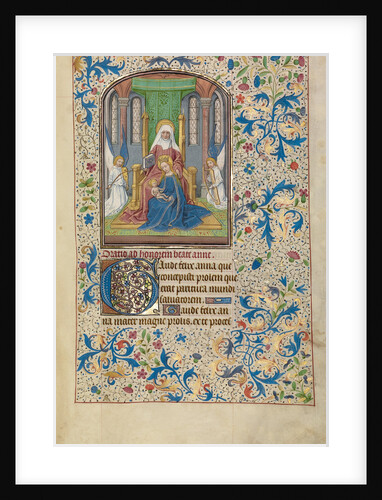 Oratio ad honorem beate anne.
Gaude felix anna que
concepisti prolem que
erat paritura mundi
saluatorem.
Gaude felix an
na mater magne prolis. ex te proce